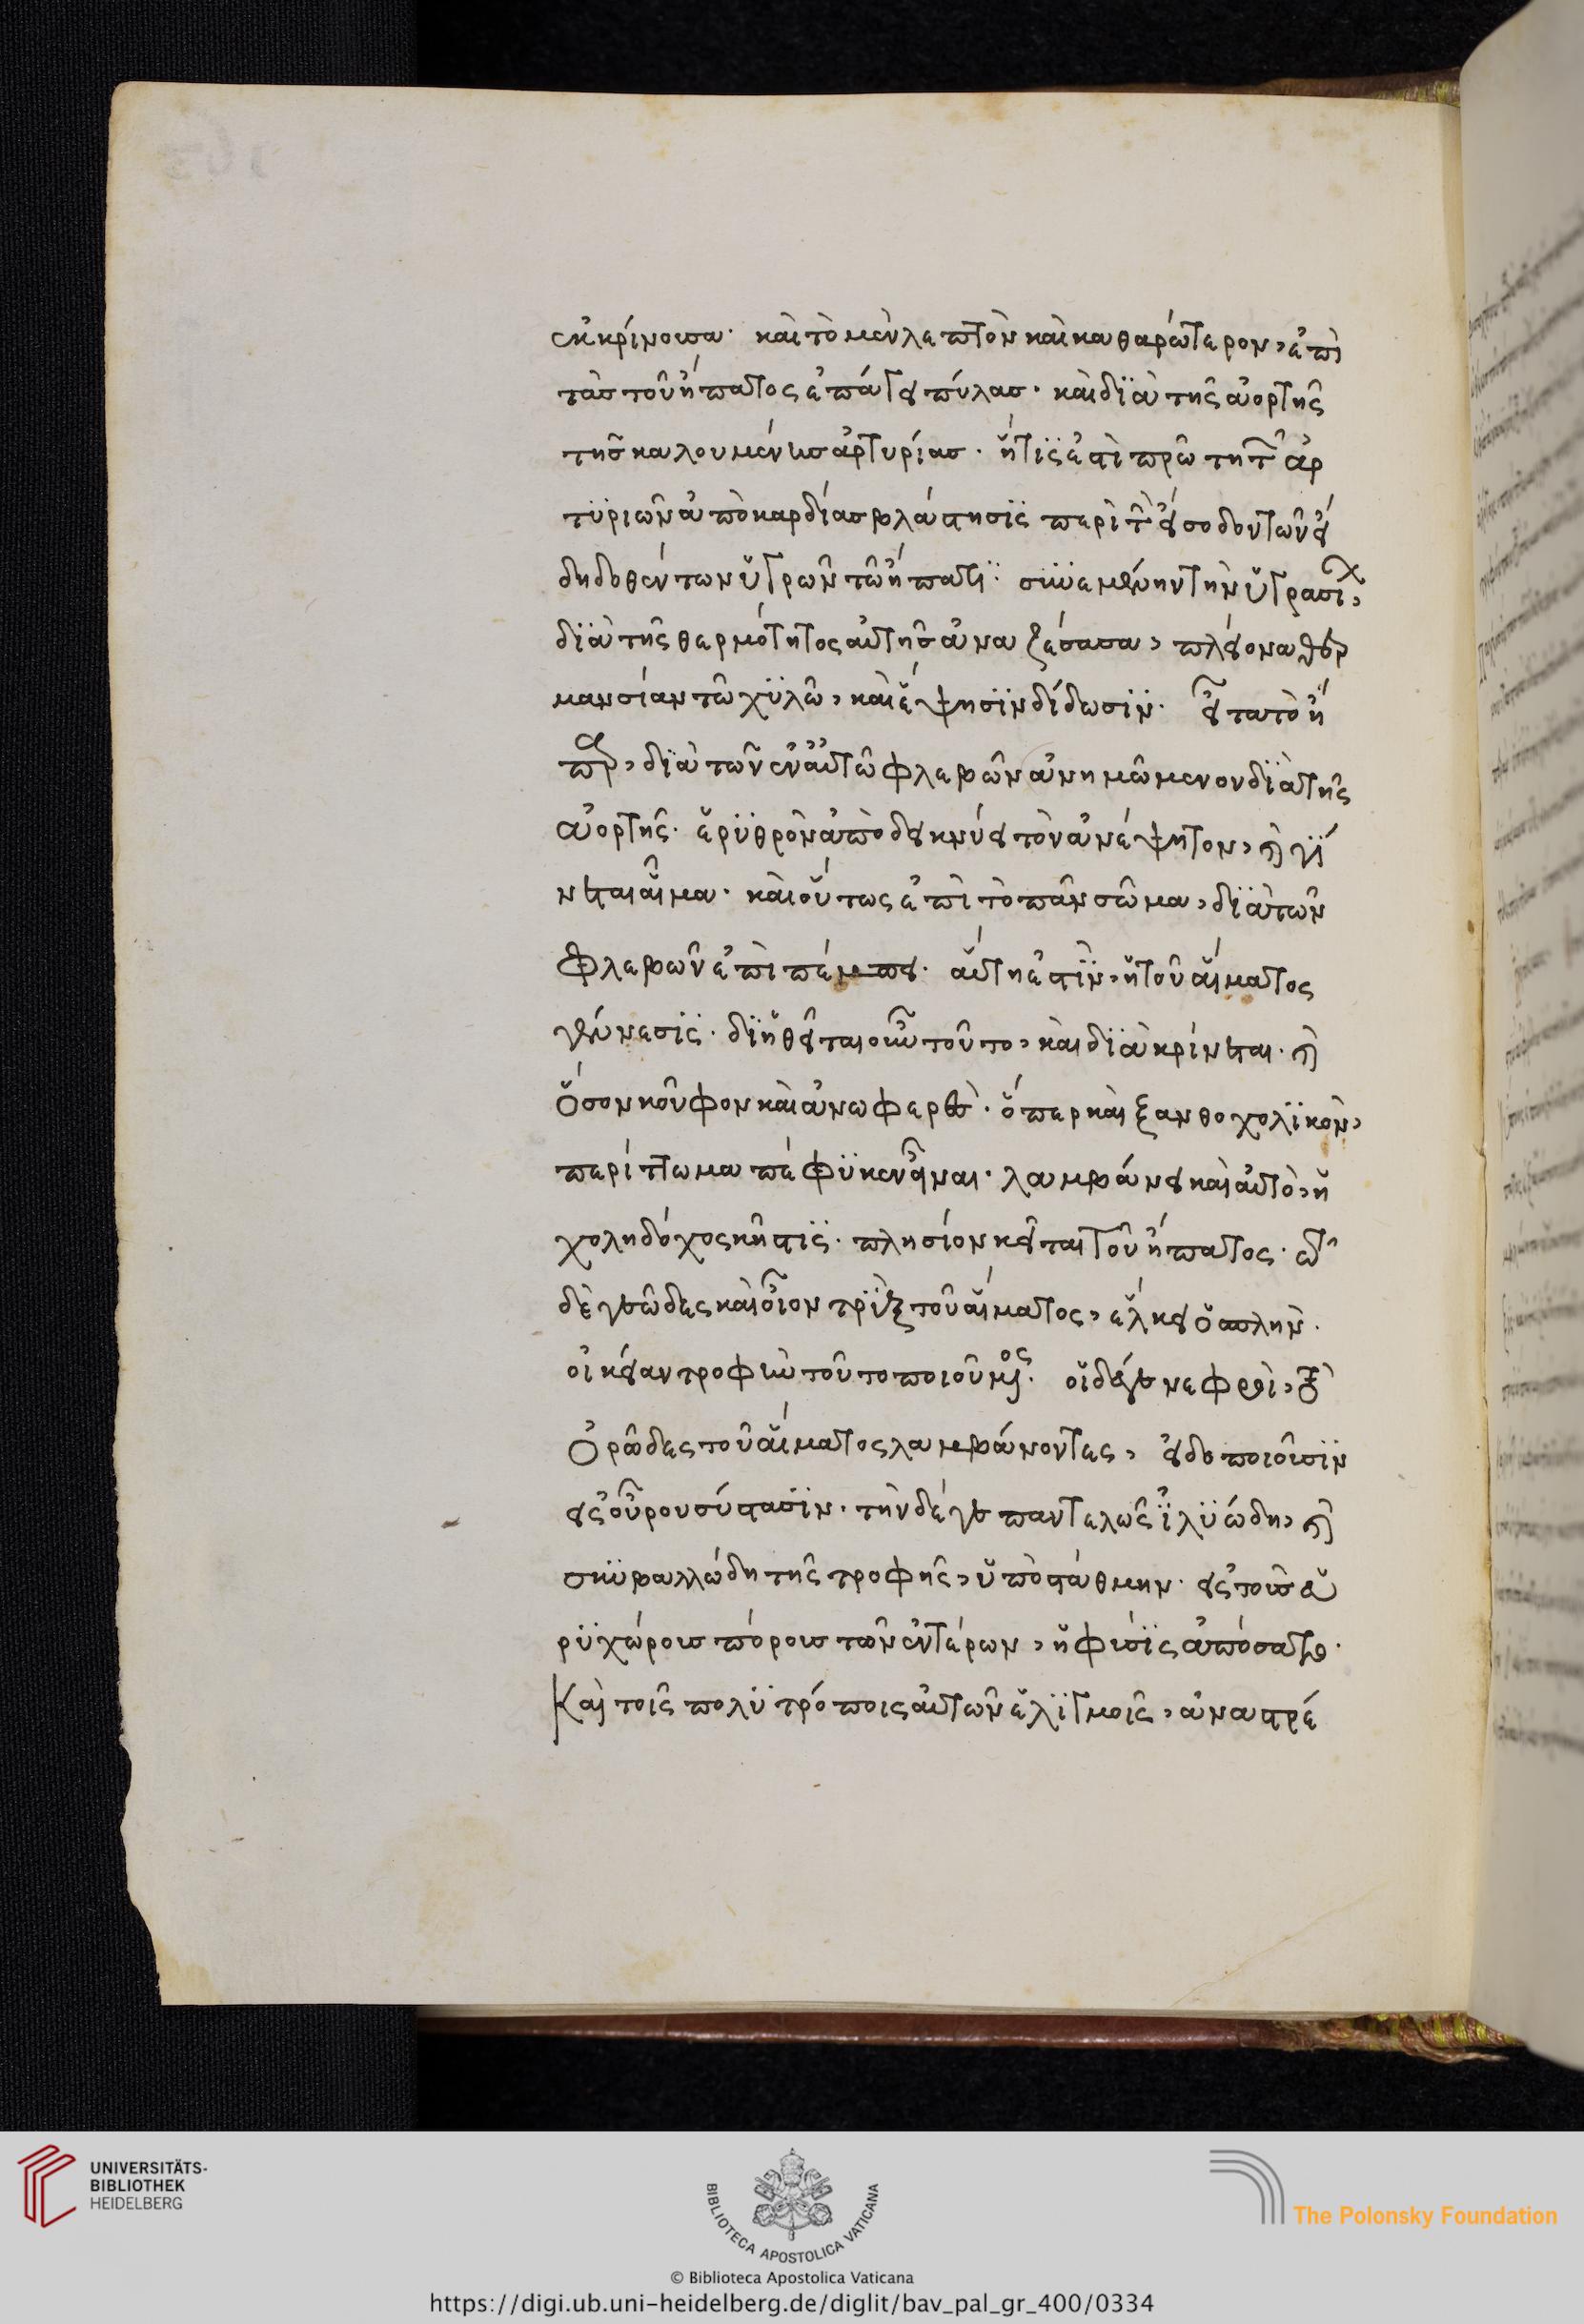 ἐκκρίνουσα· καὶ τὸ μὲν λεπτὸν καὶ καθαρώτερον, ἐπὶ
τὰσ τοῦ ἥπατος ἐπάγει πύλασ· καὶ δϊὰ τῆς ἀορτῆς
τῆσ καλουμένησ ἀρτυρίασ· ἥτϊς ἐστὶ πρώτη τῶν ἀρ
τϋριῶν ἀπὸ καρδίασ βλάστησϊς περὶ τὴν εἴσοδον τῶν εἰ
δηδοθέντων ὑγρῶν τῶ ἥπατϊ·
δϊὰ τῆς θερμότητος αὐτῆσ ἀναζέσασα, πλείονα θερ
μανσίαν τῶ χϋλῶ, καὶ ἔψησϊν δίδωσϊν· εἶτα τὸ ἧ
παρ, δϊὰ τῶν ἐν αὐτῶ φλεβῶν ἀνημώμενον δϊὰ τῆς
ἀορτῆς· ἐρϋθρὸν ἀποδεικνύει τὸν ἀνέψητον, καὶ γΐ
νεται αἷμα· καὶ οὕτως ἐπὶ τὸ πᾶν σῶμα, δϊὰ τῶν
φλεβῶν ἐπιπέμπει· αὕτη ἐστὶν, ἡ τοῦ αἵματος
γέννεσϊς· δϊηθεῖται οὖν τοῦτο, καὶ δϊακρίνεται· καὶ
ὅσον κοῦφον καὶ ἀνωφερὲς· ὅπερ καὶ ξανθοχολϊκὸν,
περίττωμα πέφϋκεν εἶναι· λαμβάνει καὶ αὐτὸ, ἡ
χοληδόχος κῆστϊς· πλησίον κεῖται τοῦ ἥπατος· τὸ
δὲ γεῶδες καὶ οἷον τρὺξ τοῦ αἵματος, ἕλκει ὁ σπλὴν·
οἰκείαν τροφὴν τοῦτο ποιούμενος· οἱ δέ γε νεφροὶ, τὸ
ὀρῶδες τοῦ αἵματος λαμβάνοντες, εἰδοποιοῦσϊν
εἰς οὖρου σύστασϊν· τὴν δέ γε παντελῶς ἰλϋώδη, καὶ
σκϋβαλλώδη τῆς τροφῆς, ὑποστάθμην· εἰς τοὺσ εὐ
ρϋχώρουσ πόρουσ τῶν ἐντέρων, ἡ φύσϊς ἀπόσατο·
Καὶ τοῖς πολϋτρόποις αὐτῶν ἑλϊγμοῖς, ἀναστρέ
UNIVERSITÄTS-
BIBLIOTHEK
HEIDELBERG
BIBLIOTECA APOSTOLICA VATICANA
The Polonsky Foundation
© Biblioteca Apostolica Vaticana
https://digi.ub.uni-heidelberg.de/diglit/bav_pal_gr_400/0334